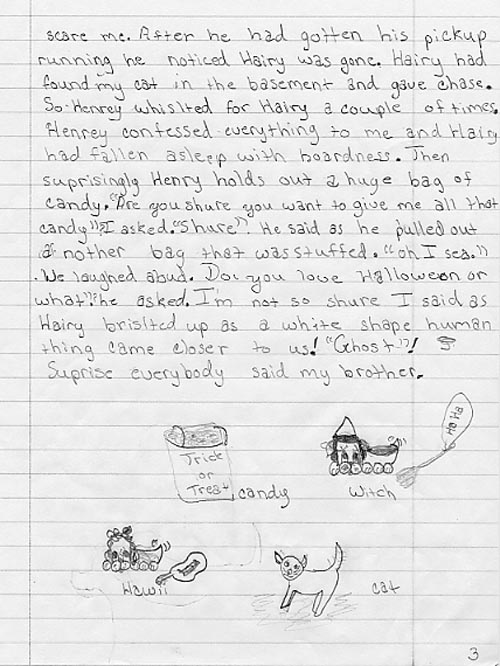 scare me. After he had gotten his pickup
running he noticed Hairy was gone. Hairy had
found my cat in the basement and gave chase.
So Henrey whislted for Hairy a couple of times.
Henrey confessed everything to me and Hairy
had fallen asleep with boardness. Then
suprisingly Henry holds out a huge bag of
candy. "Are you shure you want to give me all that
candy"? I asked. "Shure". He said as he pulled out
a nother bag that was stuffed. "oh I sea."
We laughed aloud. Do you love Halloween or
what"? he asked. I'm not so share I said as
Hairy brislted up as a white shape human
thing came closer to us! "Ghost"!
Suprise everybody said my brother.
Trick
or
Treat
candy
Ha Ha
Witch
Hawii
cat
3